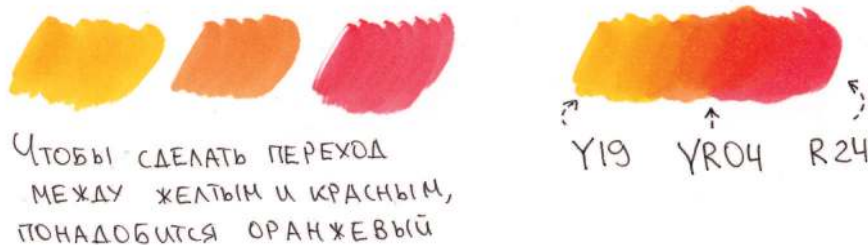 Чтобы сделать переход
между желтым и красным,
понадобится оранжевый
Y19 YR04 R24